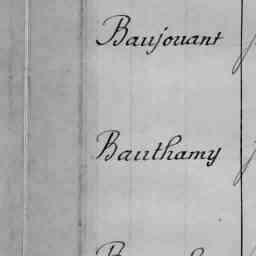 Baujouant
Bauthamy